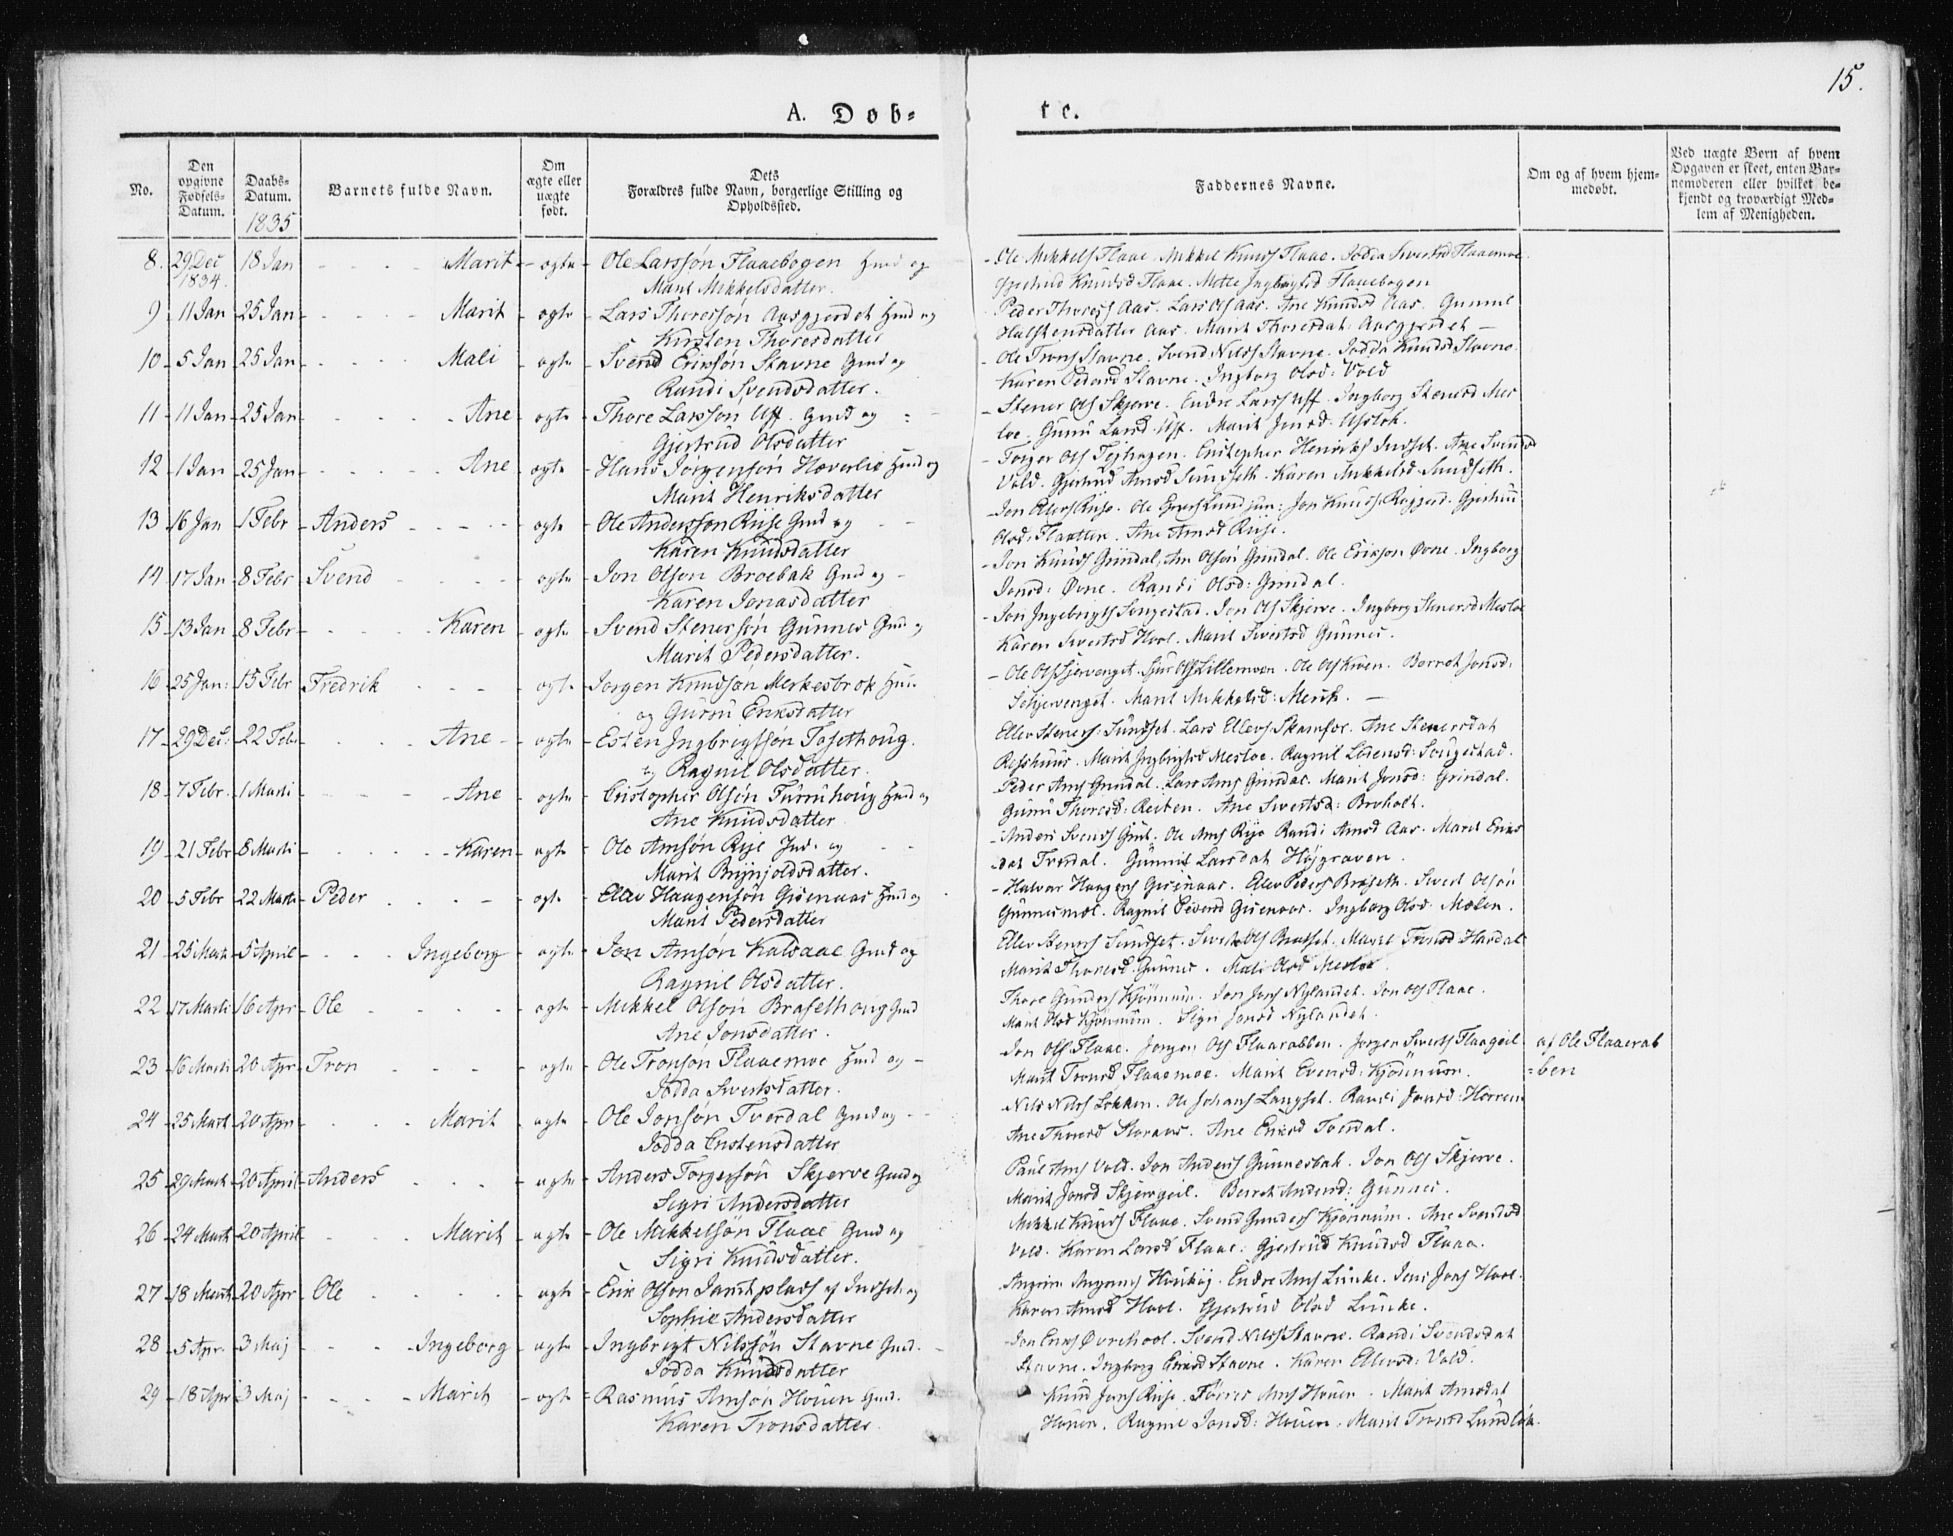 15.
A. Døb=
te.
No.
Den opgivne Fødsels-Datum.
Daabs-Datum.
1835
Barnets fulde Navn.
Om ægte eller uægte født.
Dets Forældres fulde Navn, borgerlige Stilling og Opholdssted.
Faddernes Navne.
Om og af hvem hjemmedøbt.
Ved uægte Børn af hvem Opgaven er skeet, enten Barnemoderen eller hvilket bekjendt og troværdigt Medlem af Menigheden.
8. 29 Dec 1834. 18 Jan Marit ægte Ole Larssøn Flaaebogen Hmd og
Marit Mikkelsdatter.
Ole Mikkels Flaae. Mikkel Knuds Flaae. Jødda Sivertsd Flaaemoe.
Gjertrud Knudsd Flaae. Mette Ingbrigtsd Flaaebogen
9 11 Jan 25 Jan Marit ægte Lars Thoressøn Aasgjerdet Hmd og
Kirsten Thoresdatter
Peder Thores Aas. Lars Ols Aas. Ane Knudsd Aas. Gunnil
Halstensdatter Aas. Marit Thoresdat: Aasgjerdet
10 5 Jan 25 Jan Mali ægte Svend Eriksøn Stavne Gmd og
Randi Svendsdatter.
Ole Trons Stavne. Svend Nils Stavne. Jødda Knudsd Stavne.
Karen Pedersd Stavne. Ingborg Olsd: Vold
11 11 Jan 25 Jan Ane ægte Thore Larsson Uff. Gmd og
Gjertrud Olsdatter
Stener Ols Skjerve. Endre Lars Uff. Ingborg Stenersd Mes
loe. Guru Larsd. Uff. Marit Jonsd.
12 1 Jan 25 Jan Ane ægte Hans Jørgensøn Hæverlie Hmd og
Marit Henriksdatter
Torger Ols. Cristopher Henriks Indset. Ane Svendsd
Vold. Gjertrud Arnsd Sundseth. Karen Mikkelsd Sundseth.
13 16 Jan 1 Febr Anders ægte Ole Anderssøn Riise Gmd og
Karen Knudsdatter
Jon Knuds
Olsd: Flaatten. Ane Arnsd Riise.
14 17 Jan 8 Febr Svend ægte Jon Olson Broebak Gmd og
Karen Jonasdatter
Jon Knuds Grindal. Arn Olsøn Grindal. Ole Erikson Øvne. Ingborg
Jonsd: Øvne. Randi Olsd: Grindal.
15 13 Jan 8 Febr Karen ægte Svend Stenersøn Gunnes Gmd og
Marit Pedersdatter.
Jon Ingebrigts Sougestad. Jon Ols Skjerve. Ingborg Stenersd Mesloe
Karen Sivertsd Hoel. Marit Sivertsd Gunnes.
16 25 Jan: 15 Febr Fredrik ægte Jorgen Knudson Merkesbrok
og Guru Eriksdatter
Ole Ols Sjervenget. Ols Lillemoen. Ole Ols Kiven. Berret Jonsd:
Schjervenget. Marit Mikkelsd: Merck.
17 29 Dec: 22 Feb Ane ægte Esten Ingbrigtsøn Tosethoug.
og Ragnil Olsdatter.
Ellev Steners: Sundset. Lars Ellevs Skamfer. Ane Stenersdat
Reshuus. Marit Ingbrigtsd Mesloe. Ragnil Sougestad.
18 7 Febr. 1 Marti Ane ægte Cristopher Olsøn Furruhoug Hmd og
Ane Knudsdatter
Peder Arns Grindal. Lars Arns Grindal. Marit Jonsd: Grindal.
Guru Thoresd: Reiten. Ane Sivertsd: Broholt.
19 21 Febr 8 Marti Karen ægte Ole Arnsøn Rise Ind. og
Marit Brijnjoldsdatter.
Anders Svends. Ole Arns Rise Randi Arnsd Aas. Marit Eriks
dat Tverdal. Gunnil Larsdat Højgraven.
20 5 Febr 22 Marti Peder ægte Ellev Haagensøn Gisenaas Hmd og
Marit Pedersdatter
Halvar Haagens Gisenaas. Ellev Peders Braseth. Sivert Olsøn
Gunnesmoe. Ragnil Gisenaas. Ingborg Olsd: Moelen.
21 25 Mart 5 April Ingeborg ægte Jon Arnsøn Kalsaae Gmd og
Ragnil Olsdatter.
Ellev Steners Sundset. Sivert Ols Bratset. Marit Tronsd Hardal
Marit Thoresd Gunnes. Mali Olsd Mesloe.
22 17 Marti 16 Apr Ole ægte Mikkel Olson Brasethoug Gmd
Ane Jonsdatter.
Thore Gunders Kjønnum. Jon Jons Nylandet. Jon Ols Flaae.
Marit Olsd Kjønnum. Sigri Jonsd Nylandet.
23 16 Marti 20 Apr Tron ægte Ole Tronson Flaaemoe Hmd og
Jødda Sivertsdatter.
Jon Ols Flaae. Jorgen Ols Flaarabben. Jorgen Siverts Flaageil
Marit Tronsd Flaaemoe. Marit Evensd: Kjønnum.
af Ole Flaaerab
=ben
24 25 Mart 20 Apr Marit ægte Ole Jonsøn Tverdal Gmd og
Jødda Estensdatter
Nils Nils Løkken. Ole Johans Langset. Randi Jonsd: Horren
Ane Thoresd. Ane Eriksd Tverdal.
25 29 Mart 20 April Anders ægte Anders Torgersøn Skjerve Gmd og
Sigri Andersdatter
Paul Arns Vold. Jon Anders Gunnesbak. Jon Ols Skjerve.
Marit Jonsd Skjervgeil. Berret Andersd: Gunnes.
26 24 Mart 20 April Marit ægte Ole Mikkelsøn Flaae Gmd og
Sigri Knudsdatter.
Mikkel Knuds Flaae. Svend Gunders Kjønnum. Ane Svendsd
Vold. Karen Larsd Flaae. Gjertrud Knudsd Flaae.
27 18 Mart 20 Apr Ole ægte Erik Olson Jamtplads af Indset og
Sophie Andersdatter
Endre Arns Lunke. Jens Jons Hoel.
Karen Arnsd Hoel. Gjertrud Olsd Lunke.
28 5 Apr. 3 Maj Ingeborg ægte Ingbrigt Nilssøn Stavne Gmd.
Jødda Knudsdatter
Jon Eriks Øvrehoel. Svend Nils Stavne. Randi Svendsdat
Stavne. Ingborg Eriksd Stavne. Karen Ellevsd: Vold.
29 18 Apr 3 Maj Marit ægte Rasmus Arnsøn Houen Gmd.
Karen Tronsdatter.
Knud Jons Riise. Arns Houen. Marit Arnsdat
Houen. Ragnil Jonsd: Houen. Marit Tronsd